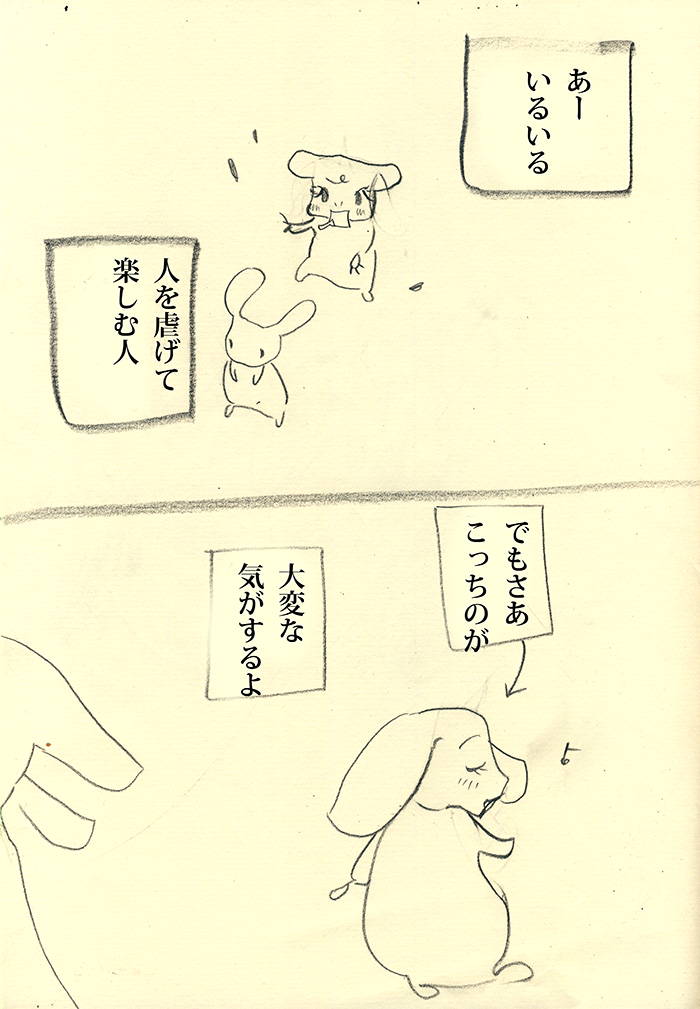 あー
いるいる
人を虐げて
楽しむ人
でもさあ
こっちのが
大変な
気がするよ